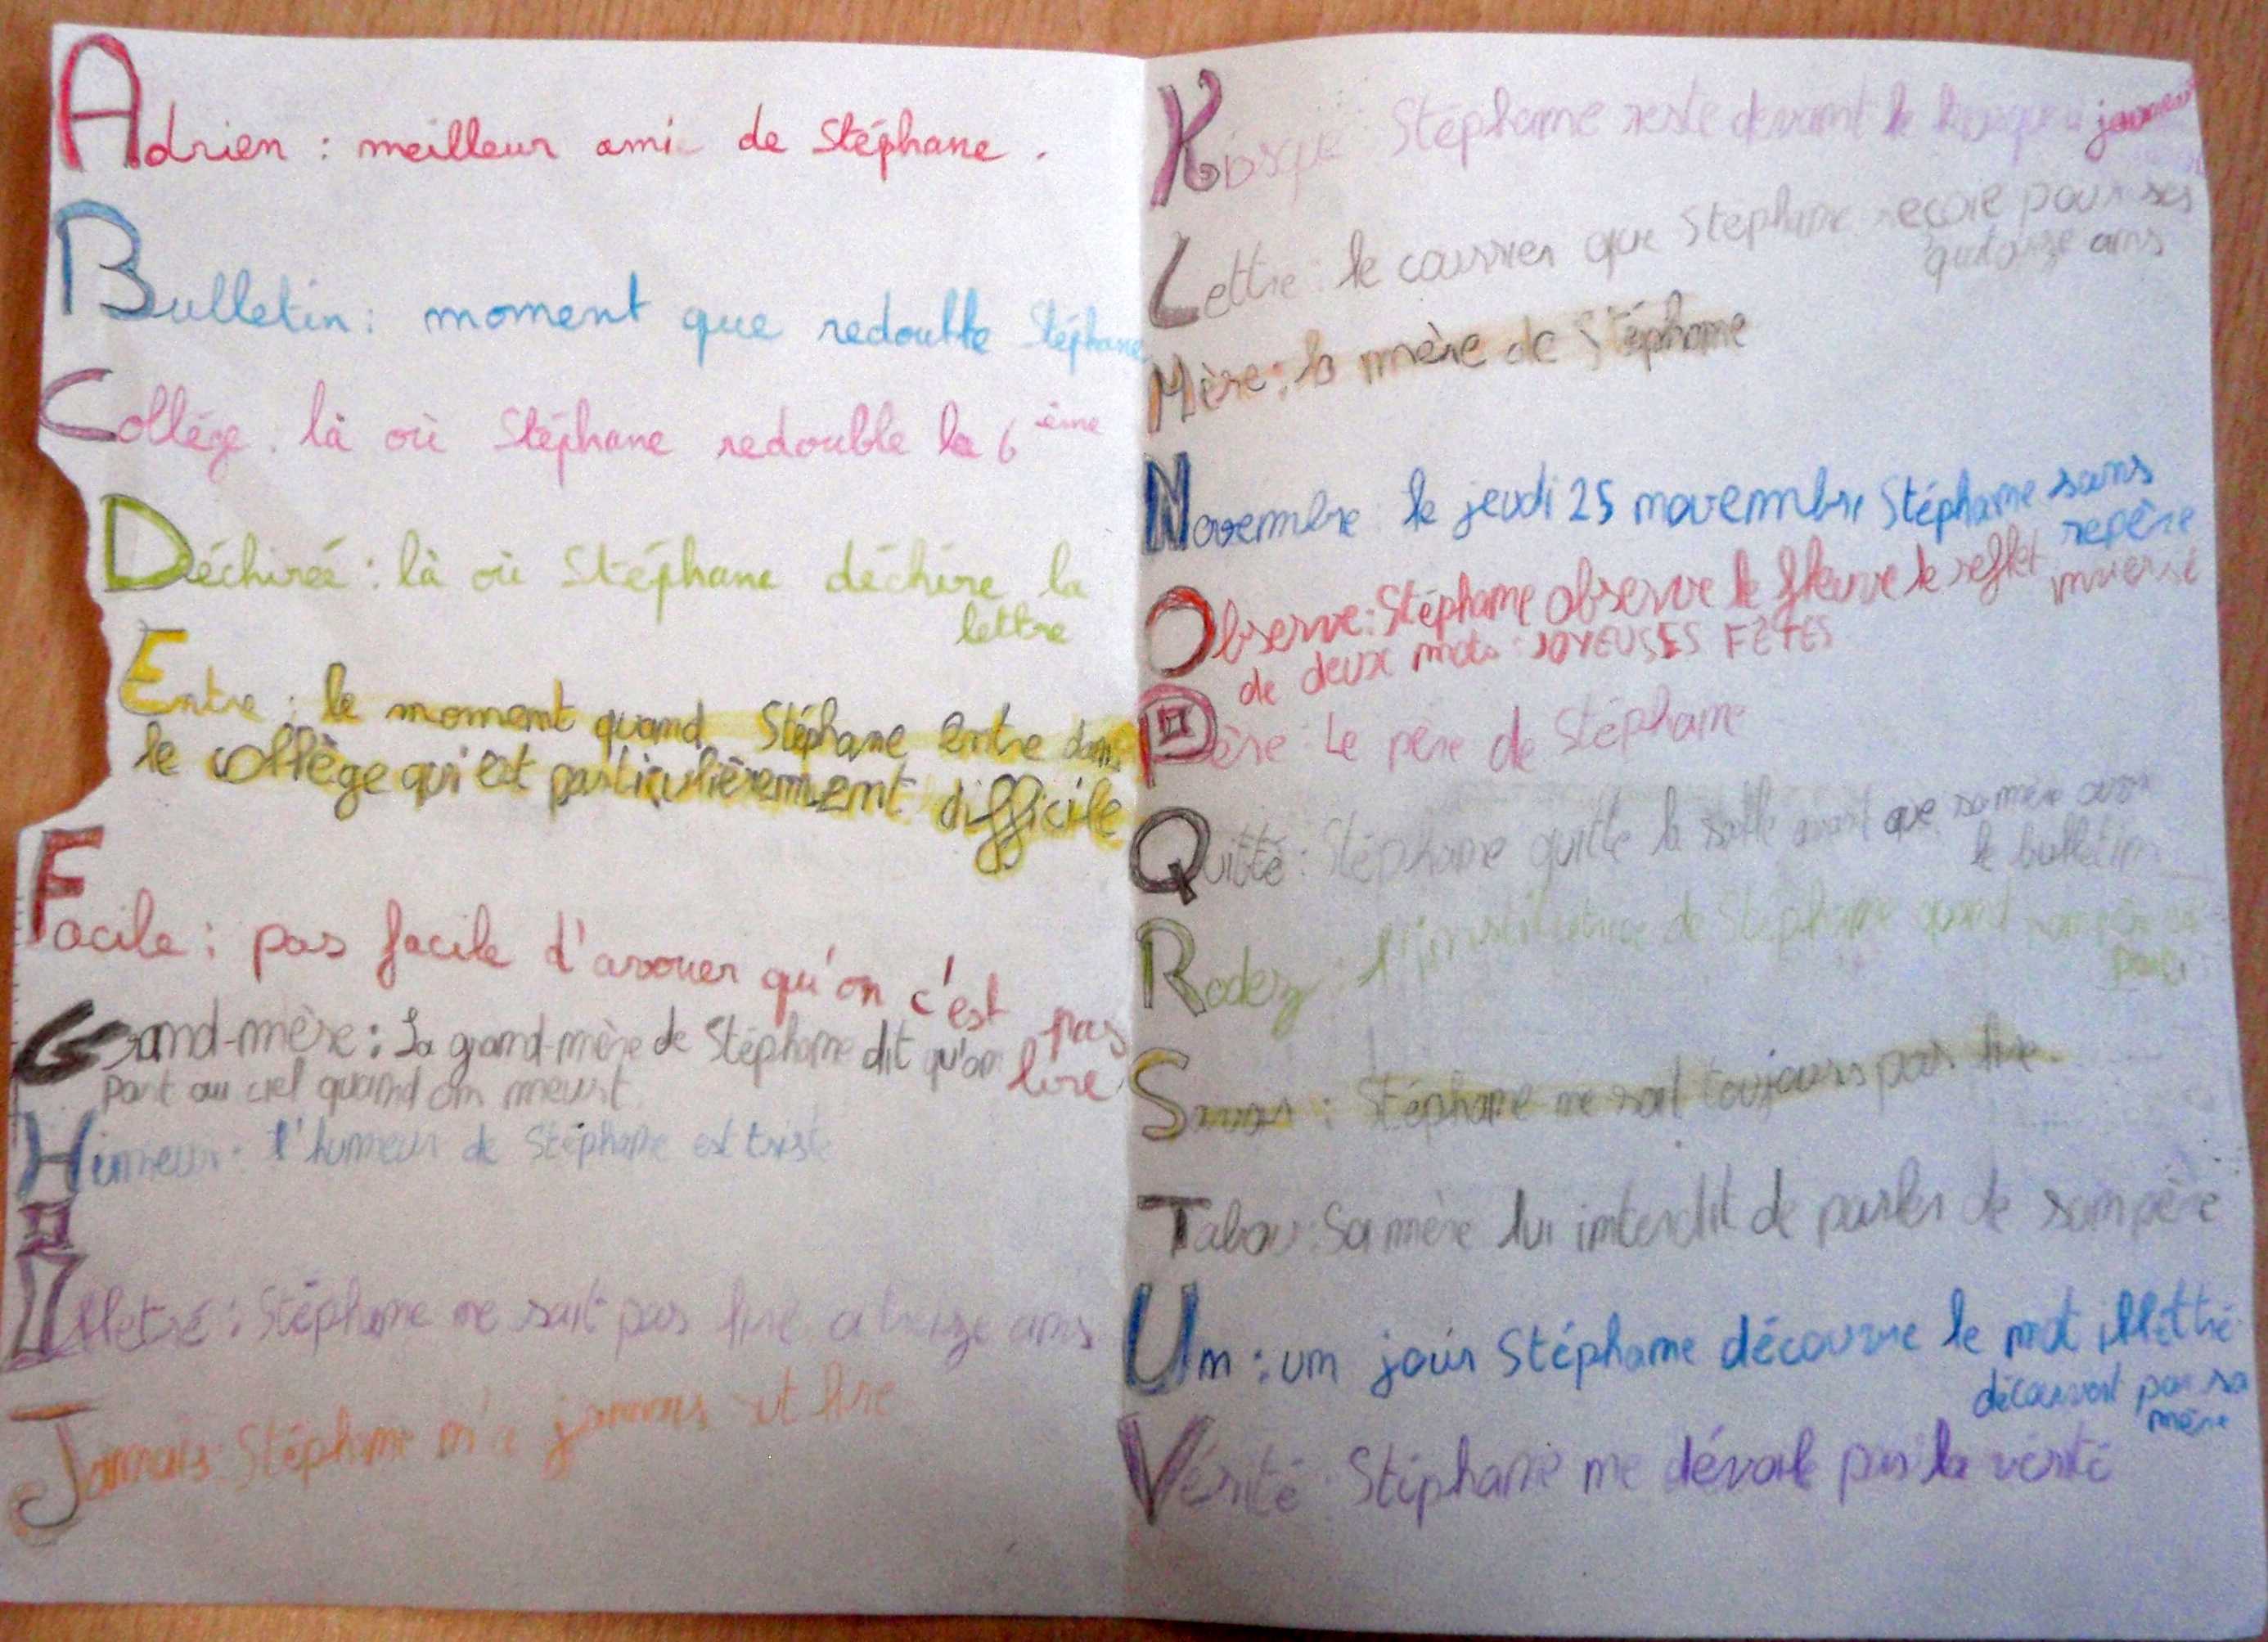 Adrien : meilleur ami de Stéphane.
Bulletin : moment que redouble Stéphane
Collége. là où Stéphane redouble la 6ème
Déchirée : là où Stéphane déchire la
lettre
Entre : le moment quand Stéphane entre dans
le collège qui est particulièrement difficile
Facile : pas facile d'avouer qu'on c'est pas
lire
Grand-mère : La grand-mère de Stéphane dit qu'on
part au ciel quand on meurt
Humeur : l'humeur de Stéphane est triste
Illetré : Stéphane ne sait pas lire a treize ans
Jamais : Stéphane n'a jamais lire
Kiosque Stéphane reste devant le kiosque a
Lettre : le courrier que Stéphane reçoie pour ses
quatorze ans
Mère : la mère de Stéphane
Novembre : le jeudi 25 novembre Stéphane sans
repère
Observe : Stéphane observe le fleuve le reflet inversé
de deux mots : JOYEUSES FÊTES
Père : Le père de Stéphane
Quitté : Stéphane quitte la salle avant que sa mère
le bulletin
Rodez : l'institutrice de Stéphane quand son père
Stéphane ne sait toujours pas lire.
Tabou : Sa mère lui interdit de parler de son père
Un : un jour Stéphane découvre le mot illettré
découvert par sa
mère
Vérité : Stéphane ne dévoile pas la vérité